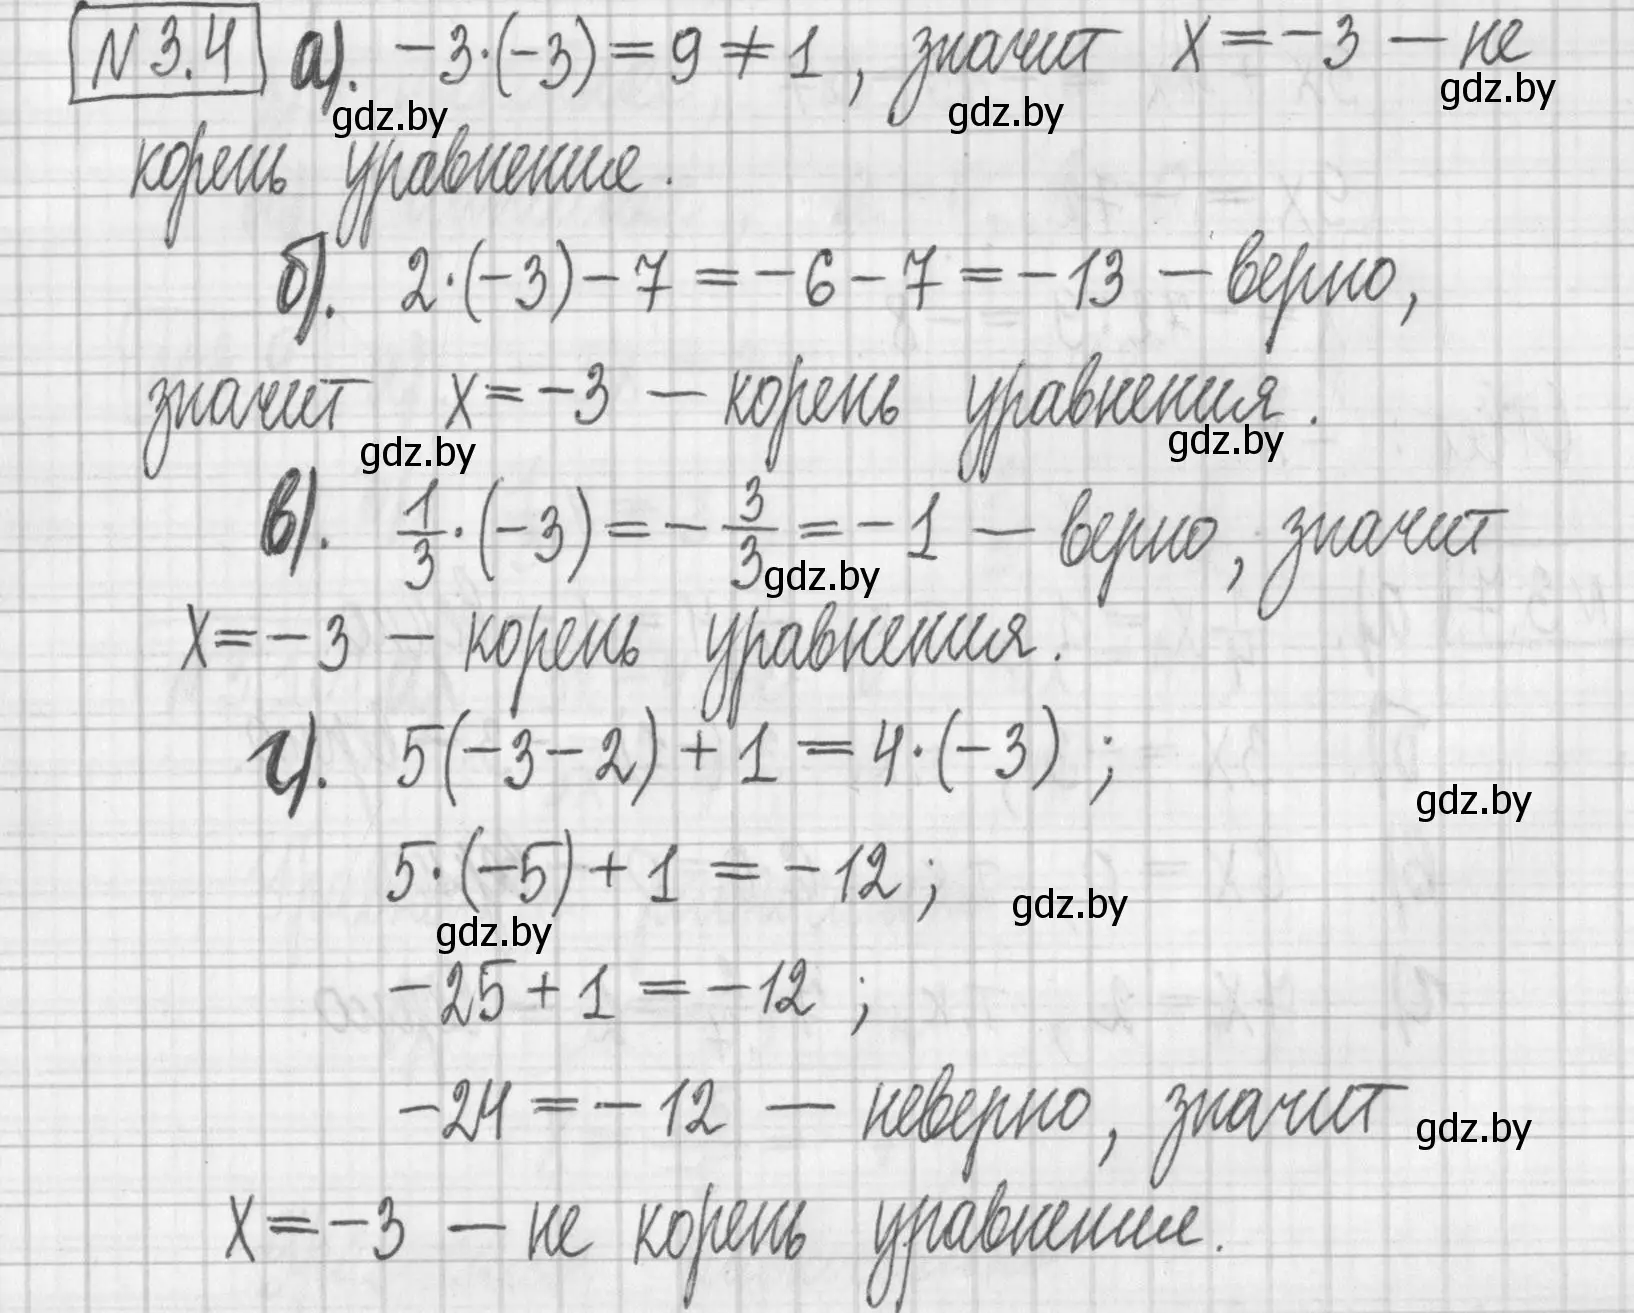 № 3.4 а). −3·(−3) = 9 ≠ 1, значит x = −3 — не
gdz.by gdz.by gdz.by
корень уравнение.
б). 2·(−3) − 7 = −6 − 7 = −13 — верно,
значит x = −3 — корень уравнения.
gdz.by gdz.by
в). 1/3 · (−3) = − 3/3 = −1 — верно, значит
gdz.by
x = −3 — корень уравнения.
г). 5(−3−2) + 1 = 4·(−3) ;
gdz.by
5·(−5) + 1 = −12 ;
gdz.by gdz.by
−25 + 1 = −12 ;
−24 = −12 — неверно, значит
gdz.by
x = −3 — не корень уравнение.